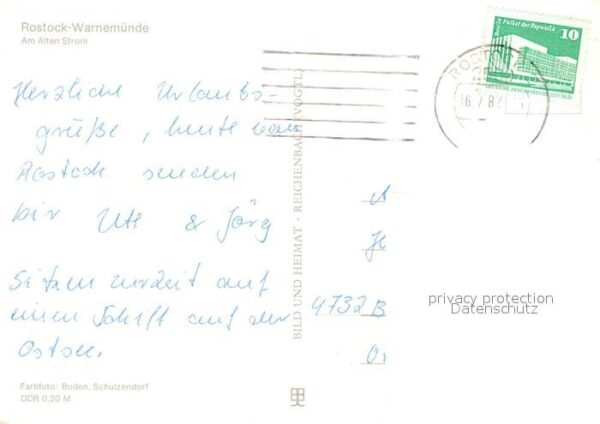 Rostock-Warnemünde
Am Alten Strom
Herzliche Urlaubs-
grüße, heute von
Rostock senden
wir Ute & Jörg
Sitzen zurzeit auf
einen Schiff auf der
Ostsee.
BILD UND HEIMAT · REICHENBACH (VOGTL)
Palast der Republik
10
ROSTOCK
16.7.8
4732 B
privacy protection
Datenschutz
Farbfoto: Boden, Schulzendorf
DDR 0,20 M